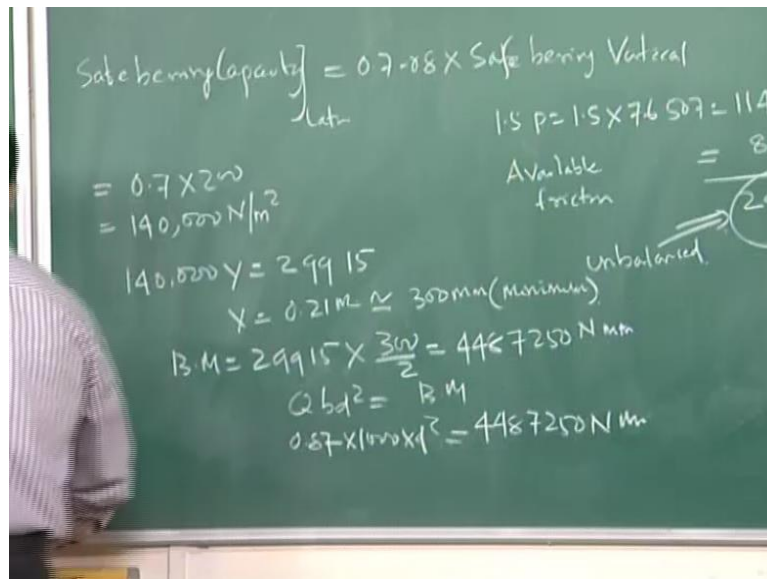 Safe bearing Capacity] Latr = 0.7-0.8 X Safe bering Vertical
1.5 P = 1.5 X 76 507 = 114
Available friction = 8
= 0.7 X 200
= 140,000 N/m²
unbalanced
140,000 Y = 299 15
Y = 0.21 m ≃ 300mm (Minimum)
B.M = 29915 X 300/2 = 4487250 N mm
Qbd² = B M
0.87 X 1000 X d² = 4487250 N mm